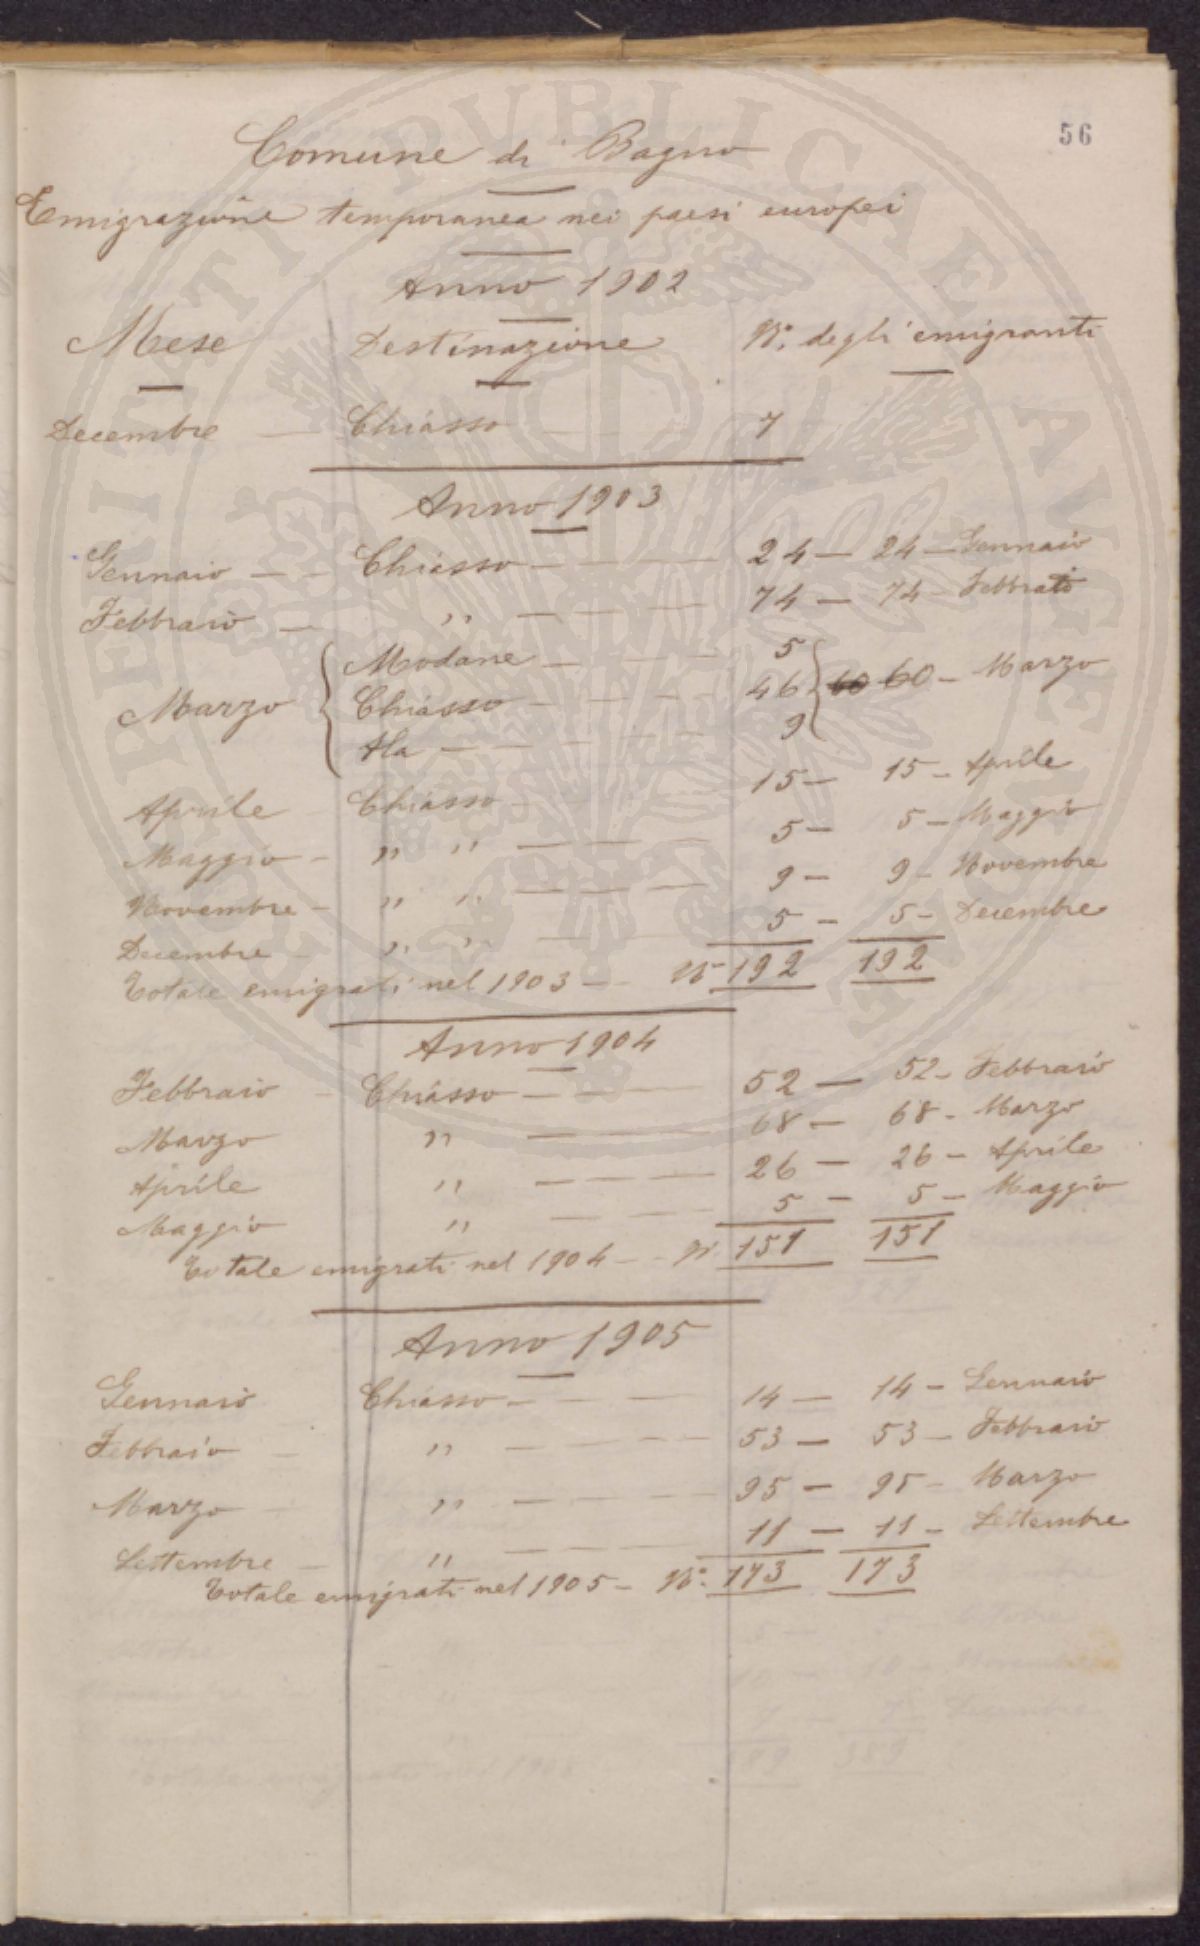 56
Comune di Bagno
Emigrazione temporanea nei paesi europei
Anno 1902
Mese Destinazione N°. degli emigranti
Decembre — Chiasso 7
Anno 1903
Gennaio — — Chiasso — — — — 24 — 24 — Gennaio
Febbraio — " — — — — 74 — 74 — Febbraio
Marzo { Modane — — — — 5
Chiasso — — — — 46 } 60 60 — Marzo
Ala — — — — — 9
Aprile Chiasso 15 — 15 — Aprile
Maggio — " " — — — — 5 — 5 — Maggio
Novembre — " " — — — — 9 — 9 — Novembre
Decembre " " — — 5 — 5 — Decembre
Totale emigrati nel 1903 — — N° 192 192
Anno 1904
Febbraio — Chiasso — — — 52 — 52 — Febbraio
Marzo " — — — — 68 — 68 — Marzo
Aprile " — — — — 26 — 26 — Aprile
Maggio " — — — — 5 — 5 — Maggio
Totale emigrati nel 1904 — — N. 151 151
Anno 1905
Gennaio Chiasso — — — 14 — 14 — Gennaio
Febbraio — " — — — — 53 — 53 — Febbraio
Marzo — " — — — — 95 — 95 — Marzo
Settembre — " — — — — 11 — 11 — Settembre
Totale emigrati nel 1905 — N°. 173 173